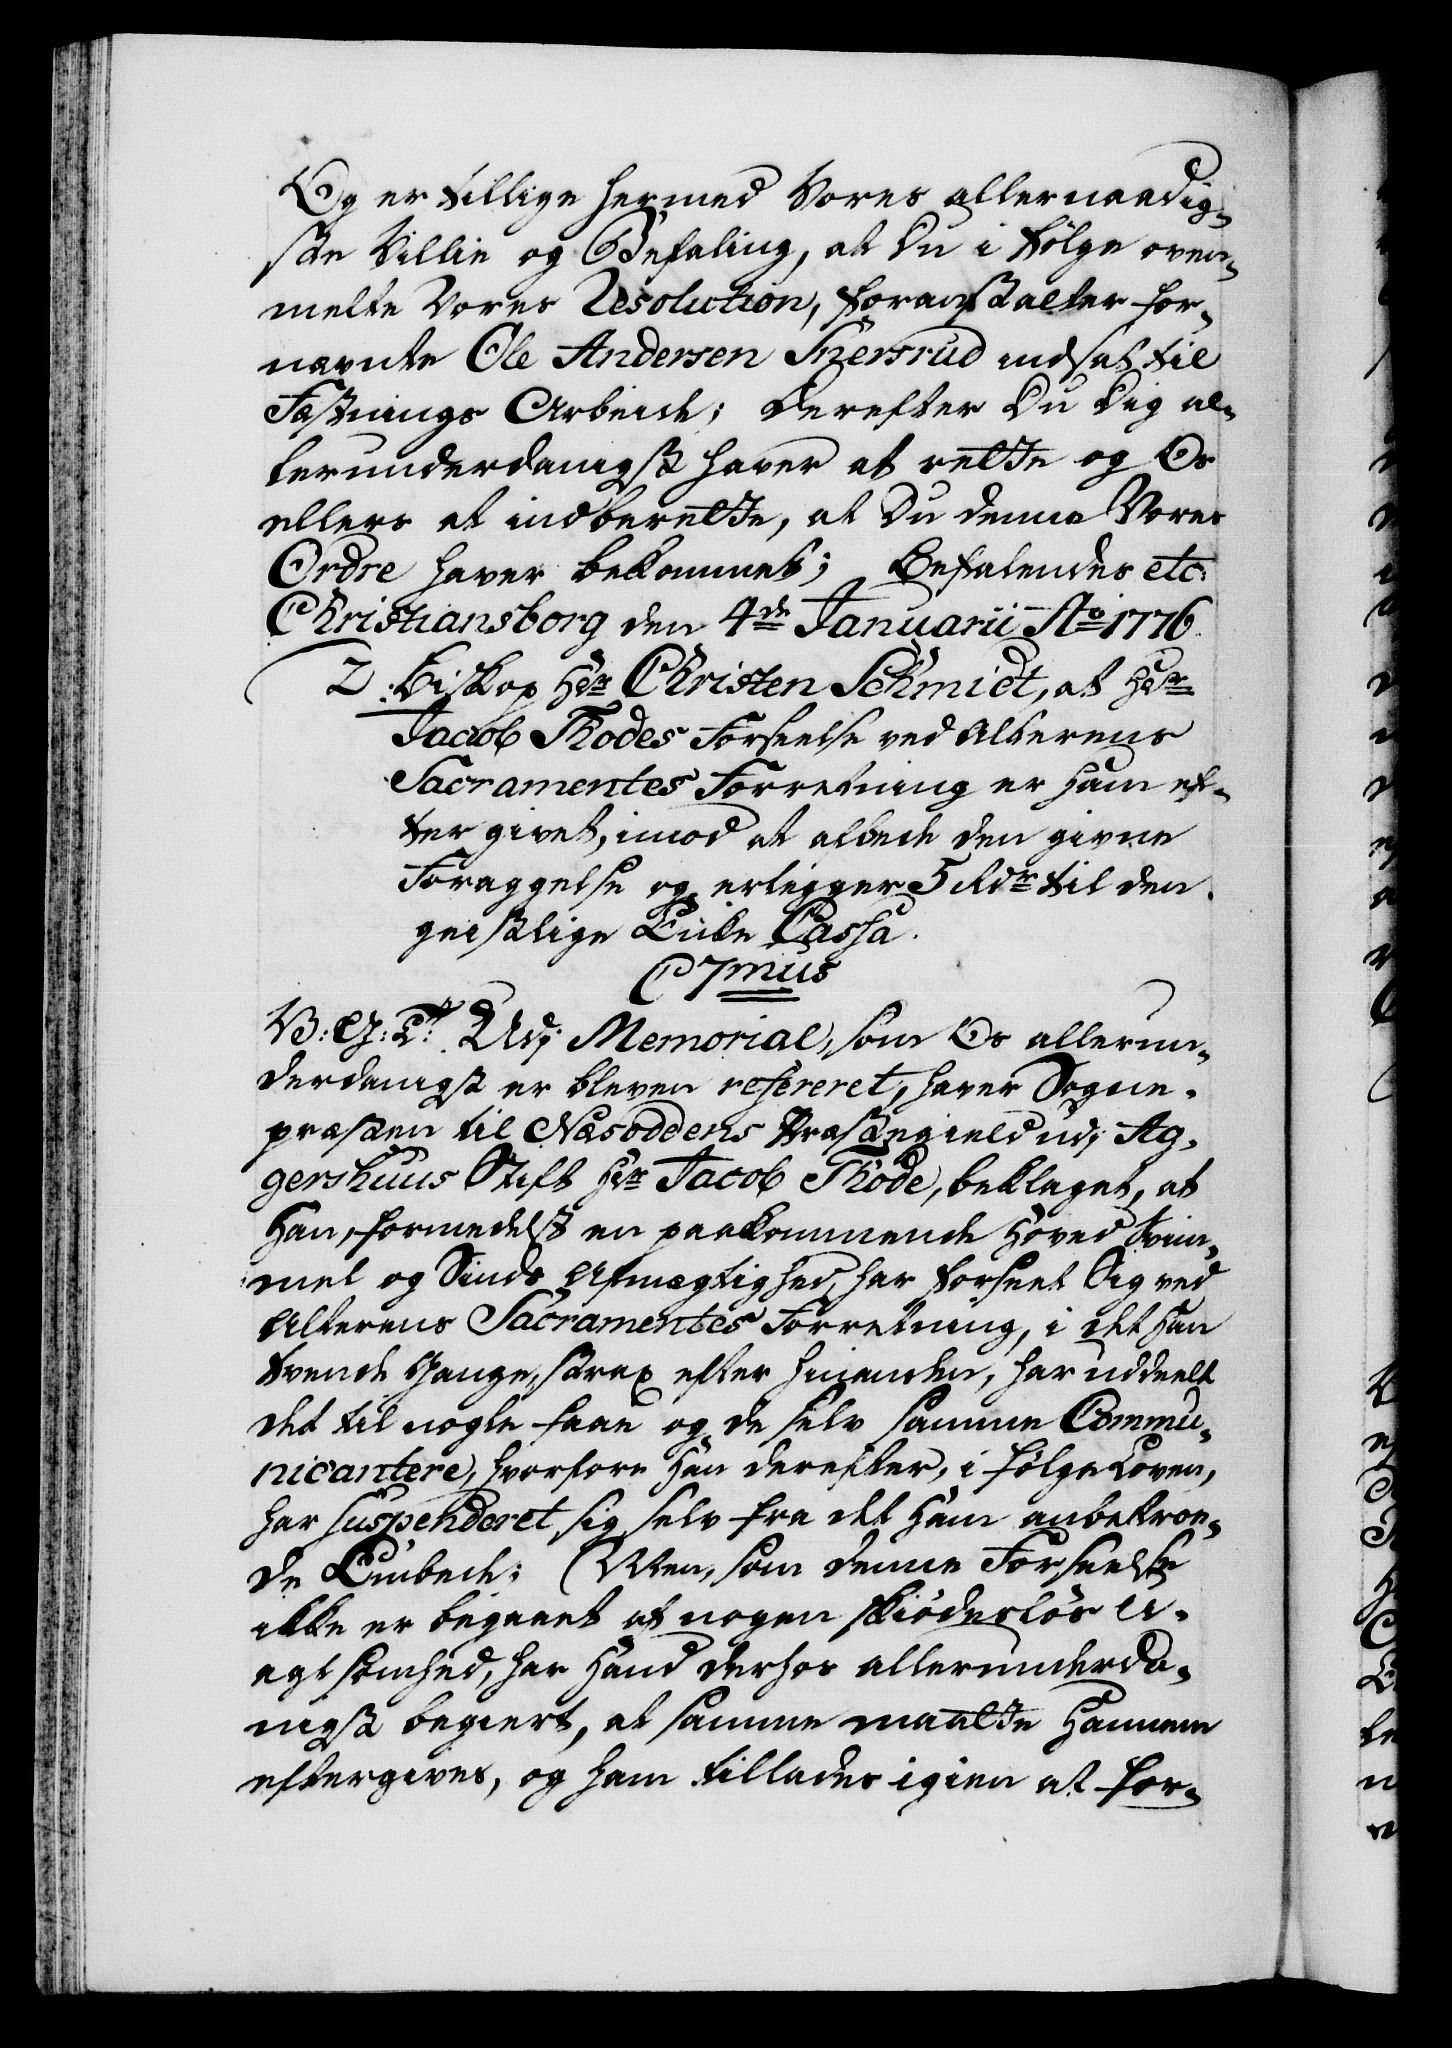 Og er tillige hermed Vores allernaadig-
ste Villie og Befaling, at Du i Følge oven-
melte Vores Resolution, foranstalter for-
nævnte Ole Andersen Snersrud indsat til
Fæstnings Arbeide; Derefter Du Dig al-
lerunderdanigst haver at rette og Os
ellers at indberette, at Du denne Vores
Ordre haver bekommet; Befalendes etc:
Christiansborg den 4de Januarii Ao 1776.
2. Biskop Hr Christen Schmidt, at Hr
Jacob Thodes Forseelse ved Alterens
Sacramentes Forretning er ham ef-
ter givet, imod at afbede den givne
Foraggelse og erlegger 5 Rdr til den
geistlige Enke Cassa.
C 7mus
V: G: T: Udj Memorial, som Os allerun-
derdanigst er bleven refereret, haver Sogne-
præsten til Næsoddens Præstegield udj Ag-
gershuus Stift Hr Jacob Thode, beklaget, at
Han, formedelst en paakommende Hoved Svim-
mel og Sinds Afmægtighed, har forseet Sig ved
Alterens Sacramentes Forretning, i det Han
tvende Gange, strax efter hinanden, har uddeelt
det til nogle faae og de selv samme Commu-
nicantere, hvorfore Han derefter, i følge Loven,
har suspenderet sig selv fra det Ham anbetroe-
de Embede; Men, som denne Forseelse
ikke er begaaet af nogen skiødesløs U-
agtsomhed, har Hand derhos allerunderda-
nigst begiert, at samme maatte Hannem
eftergives, og ham tillades igien at for-